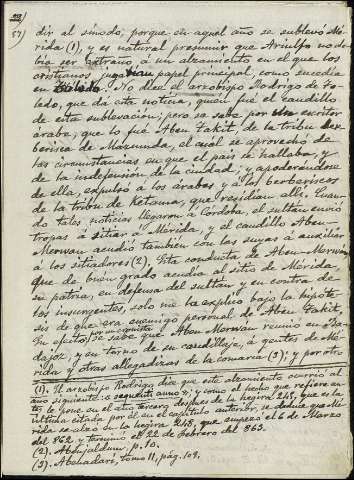 57)
dir al sínodo, porque en aquel año se sublevó Mé-
rida (1), y es natural presumir que Ariulfo no de-
bía ser extraño, á un alzamiento en el que los
cristianos jugarían papel principal, como sucedía
en Toledo. No dice el arzobispo Rodrigo de To-
ledo, que dá esta noticia, quien fué el caudillo
de esta sublevación; pero se sabe por un escritor
árabe, que lo fué Aben Takit, de la tribu ber-
berisca de Mazmuda, el cual se aprovechó de
las circunstancias en que el país se hallaba, y
de la indefensión de la ciudad; y apoderándose
de ella, expulsó á los árabes y á los berberiscos
de la tribu de Ketama, que residian allí. Cuan-
do tales noticias llegaron á Córdoba, el sultan envió
tropas á sitiar á Mérida, y el caudillo Aben
Merwan acudió tambien con las suyas á auxiliar
á los sitiadores (2). Esta conducta de Aben-Merwan,
que de buen grado acudia al sitio de Mérida,
su patria, en defensa del sultan y en contra de
los insurgentes, solo me la explico bajo la hipóte-
sis de que era enemigo personal de Aben Takit.
En efecto, se sabe que Aben Merwan reunió en Ba-
dajoz, y en torno de su caudillaje, á gentes de Mé-
rida y otras allegadizas de la comarca (3); y por otro
(1). El arzobispo Rodrigo dice que este alzamiento ocurrió al
año siguiente: y como el hecho que refiere an-
tes le pone en el año tercero despues de la hegira 245, que es la
última citada por él en el capítulo anterior, se deduce que Mé-
rida se alzó en la hegira 248, que empezó el 6 de Marzo
del 862 y terminó el 22 de Febrero del 863.
(2). Abenjaldun, p. 10.
(3). Abenadari, tomo II, pág. 104.